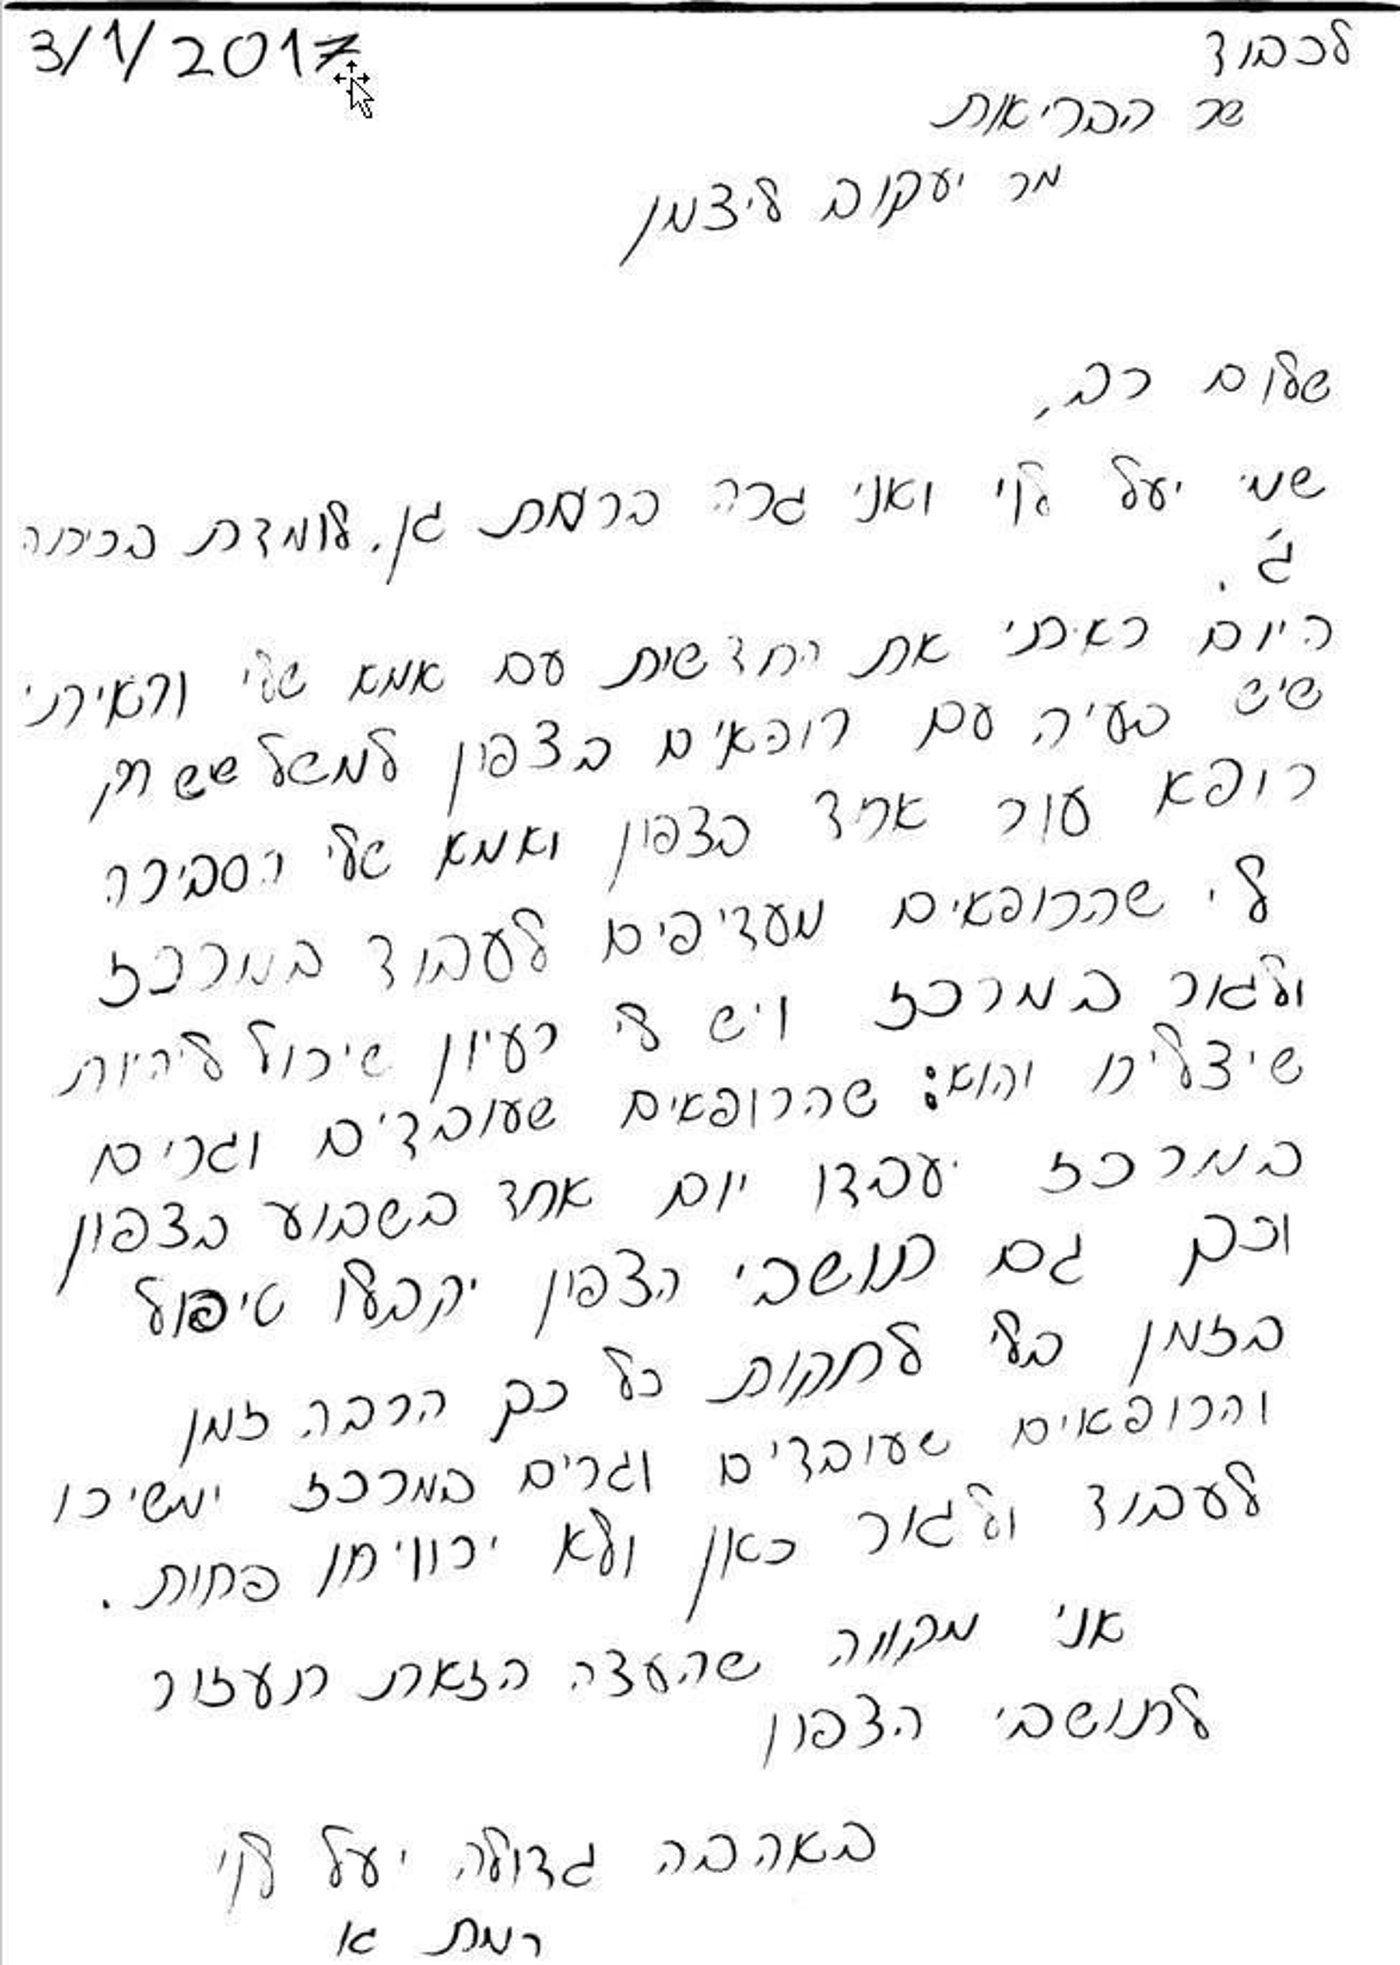 3/1/2017
לכבוד
שר הבריאות
מר יעקוב ליצמן
שלום רב,
שמי יעל לוי ואני גרה ברמת גן. לומדת בכיתה
ג'.
היום ראיתי את החדשות עם אמא שלי וראיתי
שיש בעיה עם רופאים בצפון למשל שיש רק
רופא עור אחד בצפון ואמא שלי הסבירה
לי שהרופאים מעדיפים לעבוד במרכז
ולגור במרכז ויש לי רעיון שיכול להיות
שיצליח והוא: שהרופאים שעובדים וגרים
במרכז יעבדו יום אחד בשבוע בצפון
וכך גם תושבי הצפון יקבלו טיפול
בזמן בלי לחקות כל כך הרבה זמן
והרופאים שעובדים וגרים במרכז ימשיכו
לעבוד ולגור כאן ולא ירוויחו פחות.
אני מקווה שהעצה הזאת תעזור
לתושבי הצפון
באהבה גדולה יעל לוי
רמת גן